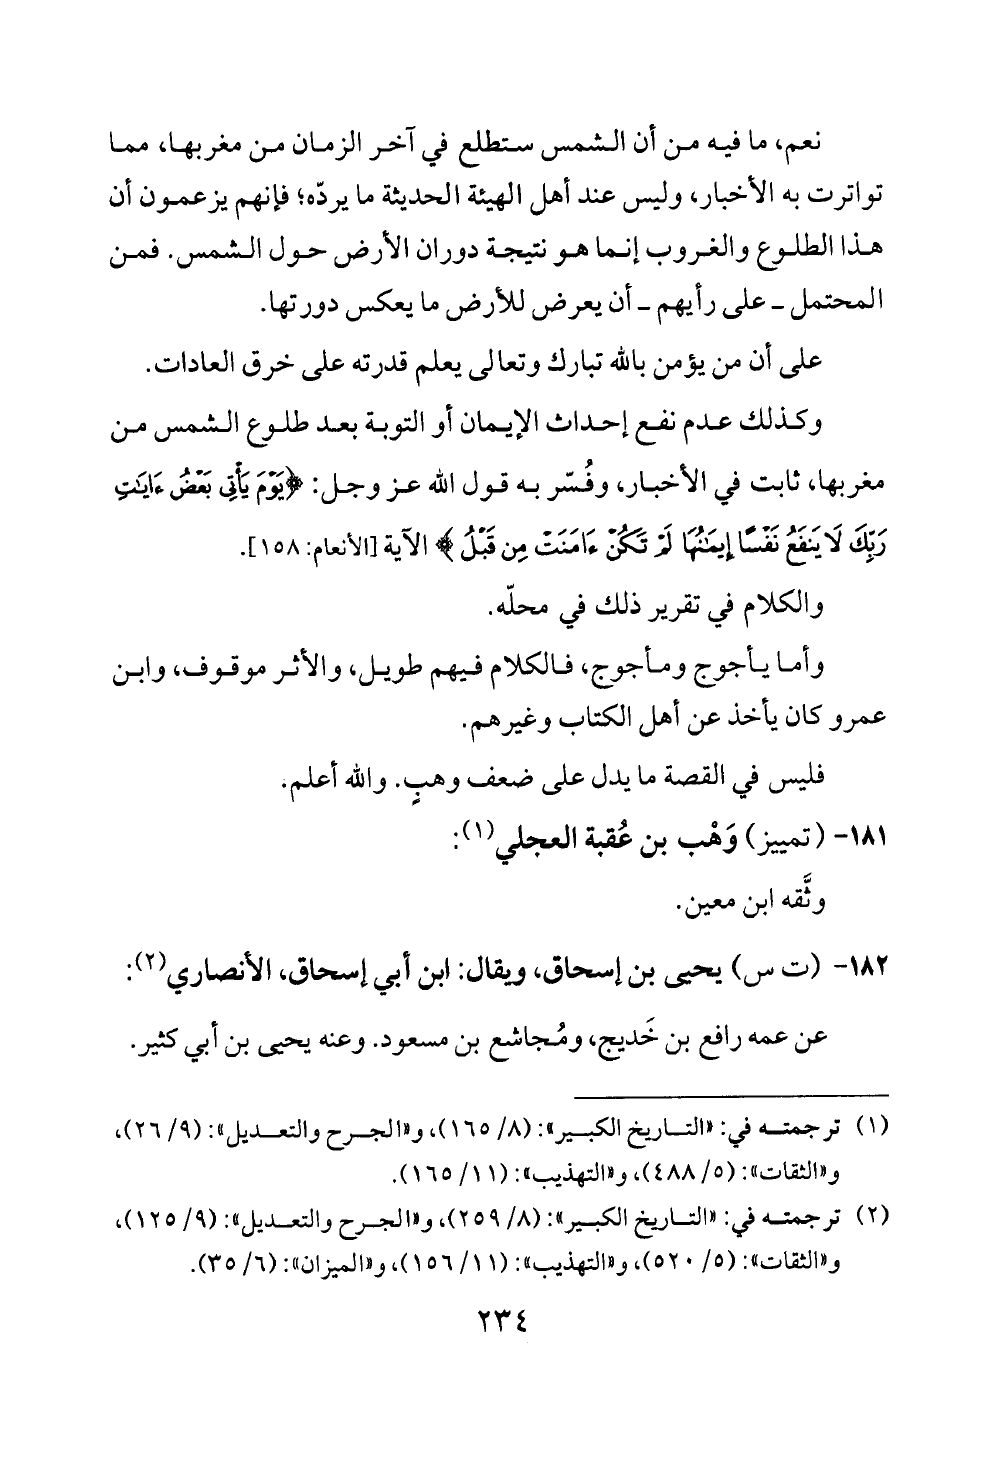 نعم، ما فيه من أن الشمس ستطلع في آخر الزمان من مغربها، مما
تواترت به الأخبار، وليس عند أهل الهيئة الحديثة ما يردّه؛ فإنهم يزعمون أن
هذا الطلوع والغروب إنما هو نتيجة دوران الأرض حول الشمس. فمن
المحتمل ـ على رأيهم ـ أن يعرض للأرض ما يعكس دورتها.
على أن من يؤمن بالله تبارك وتعالى يعلم قدرته على خرق العادات.
وكذلك عدم نفع إحداث الإيمان أو التوبة بعد طلوع الشمس من
مغربها، ثابت في الأخبار، وفُسّر به قول الله عز وجل: ﴿يَوْمَ يَأْتِى بَعْضُ ءَايَـٰتِ
رَبِّكَ لَا يَنفَعُ نَفْسًا إِيمَـٰنُهَا لَمْ تَكُنْ ءَامَنَتْ مِن قَبْلُ﴾ الآية [الأنعام: ١٥٨].
والكلام في تقرير ذلك في محلّه.
وأما يأجوج ومأجوج، فالكلام فيهم طويل، والأثر موقوف، وابن
عمرو كان يأخذ عن أهل الكتاب وغيرهم.
فليس في القصة ما يدل على ضعف وهبٍ. والله أعلم.
١٨١- (تمييز) وَهْب بن عُقبة العجلي(١):
وثَّقه ابن معين.
١٨٢- (ت س) يحيى بن إسحاق، ويقال: ابن أبي إسحاق، الأنصاري(٢):
عن عمه رافع بن خَديج، ومُجاشع بن مسعود. وعنه يحيى بن أبي كثير.
(١) ترجمته في: «التاريخ الكبير»: (٨/ ١٦٥)، و«الجرح والتعديل»: (٩/ ٢٦)،
و«الثقات»: (٥/ ٤٨٨)، و«التهذيب»: (١١/ ١٦٥).
(٢) ترجمته في: «التاريخ الكبير»: (٨/ ٢٥٩)، و«الجرح والتعديل»: (٩/ ١٢٥)،
و«الثقات»: (٥/ ٥٢٠)، و«التهذيب»: (١١/ ١٥٦)، و«الميزان»: (٦/ ٣٥).
٢٣٤